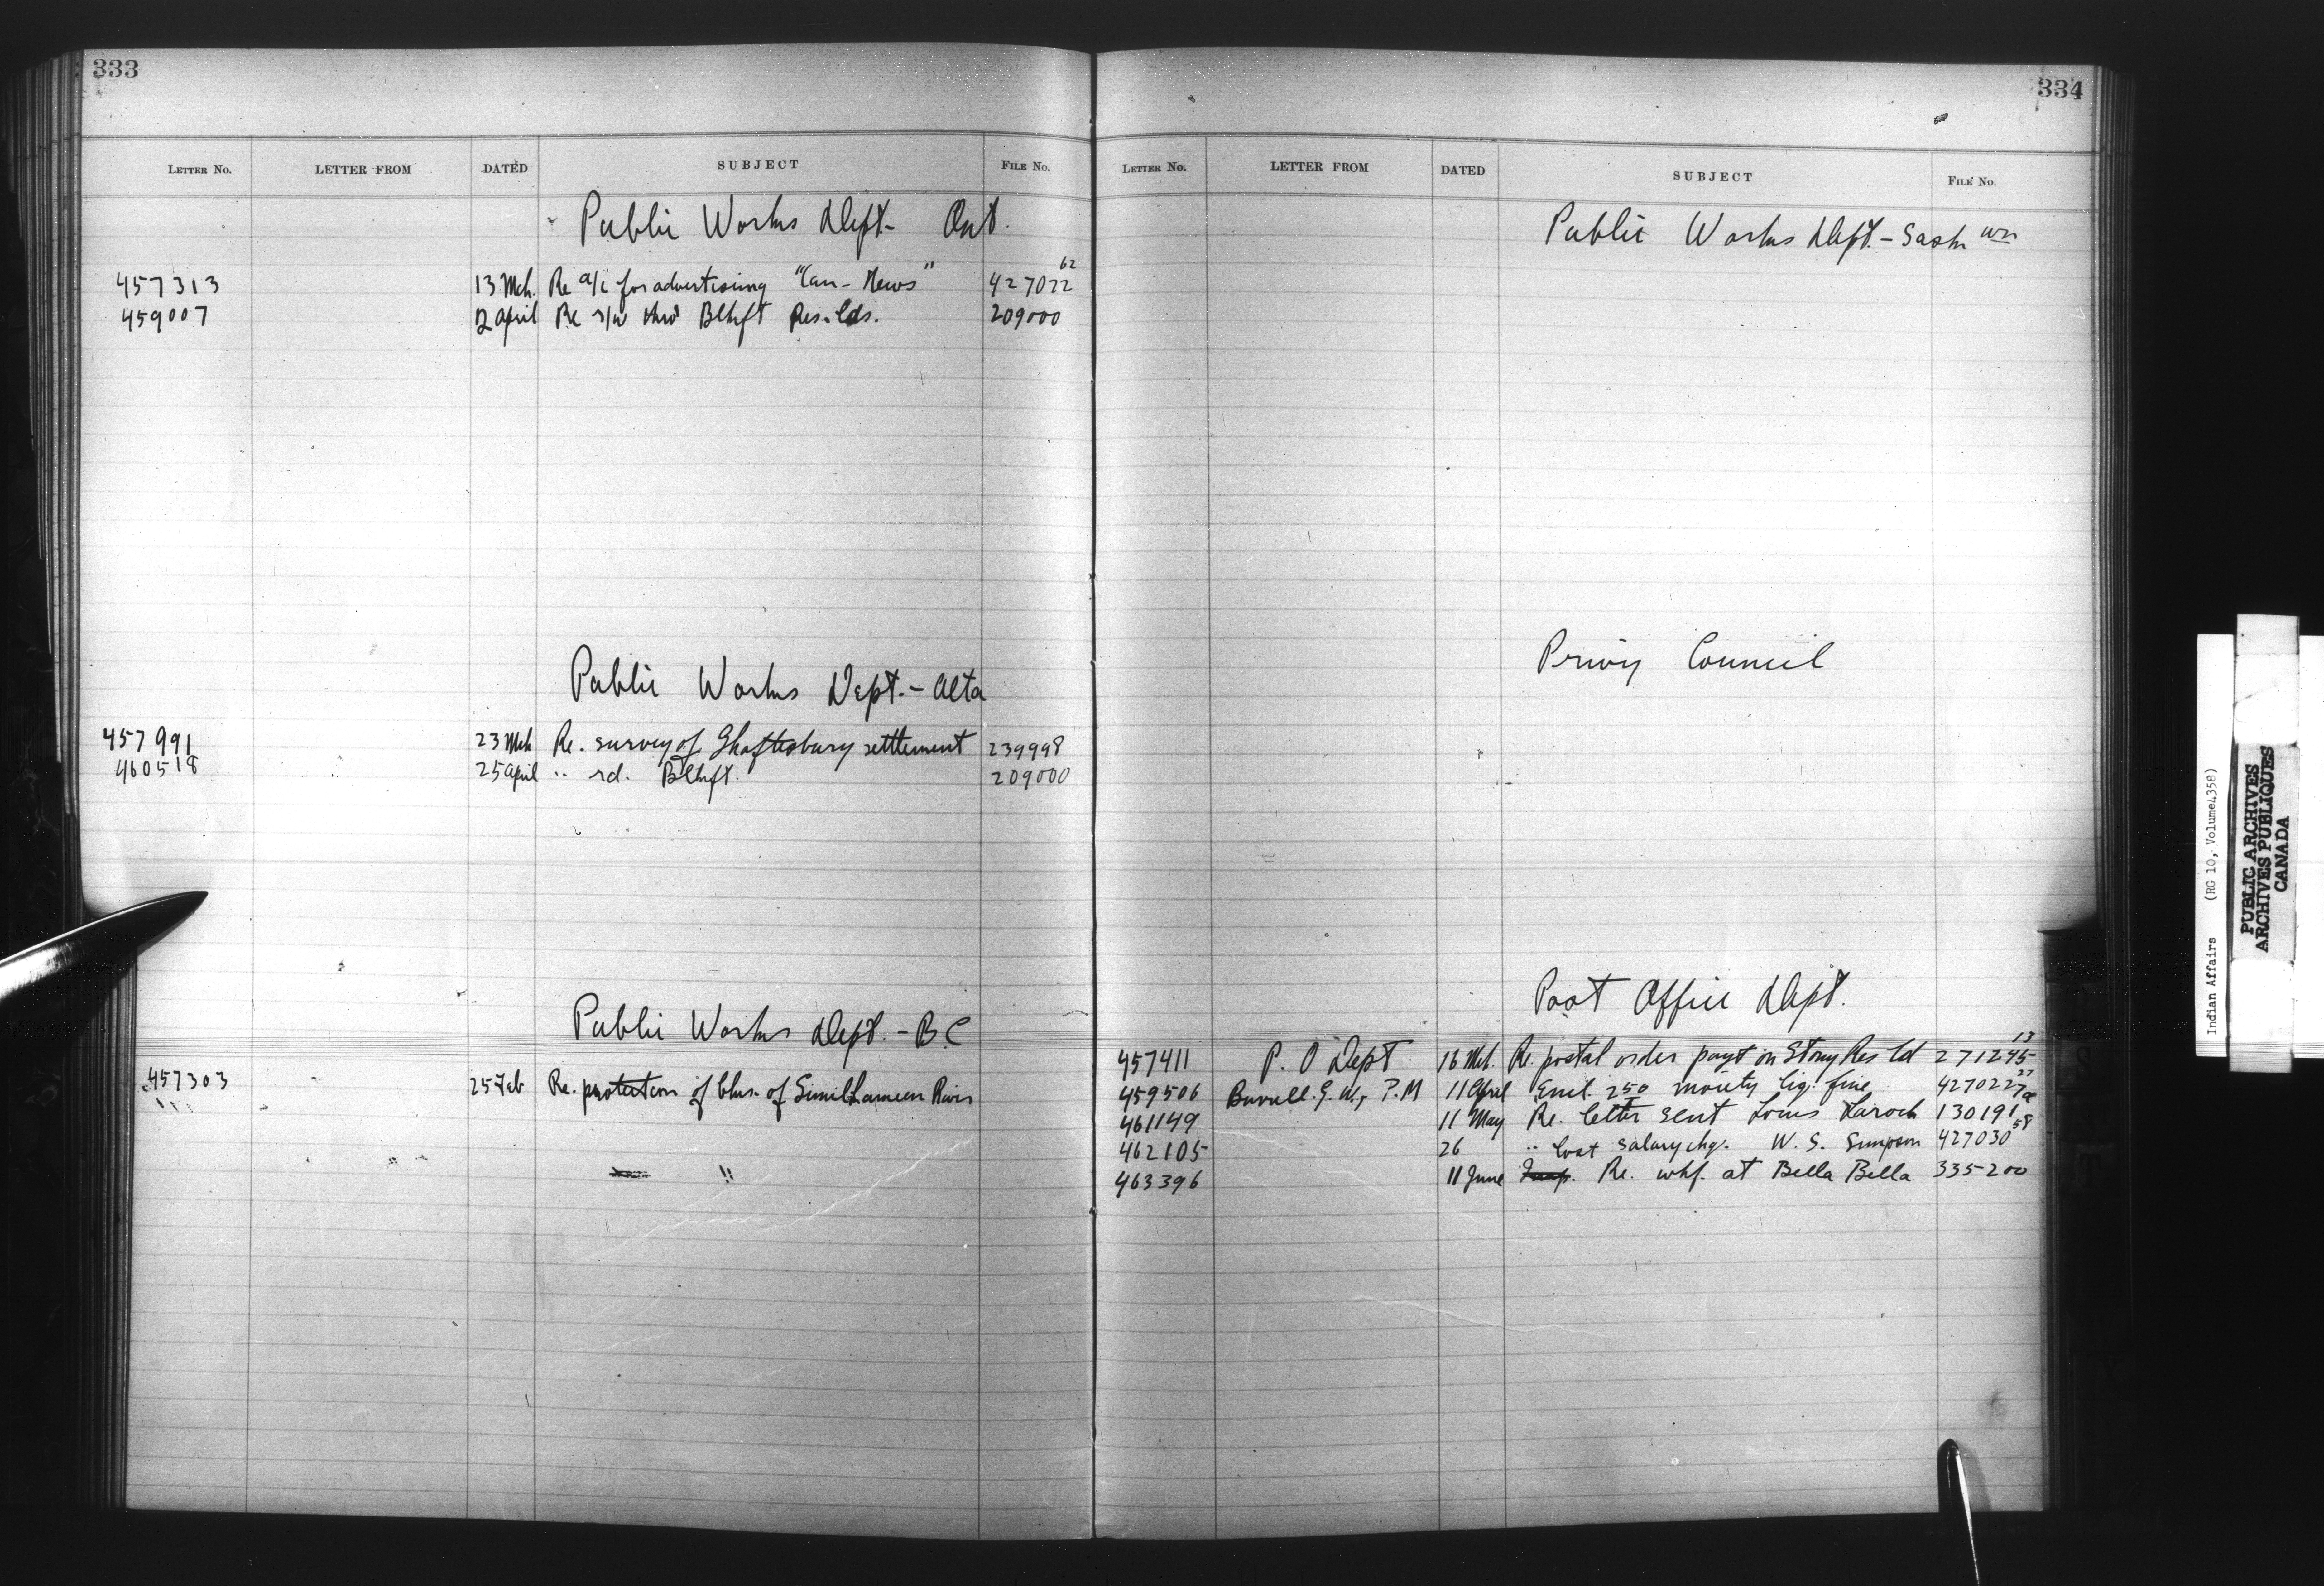 333
LETTER NO. LETTER FROM DATED SUBJECT FILE NO.
Public Works Dept- Ont.
457313 13 Mch. Re a/c for advertising "Can-News" 427022 62
459007 12 April Re r/w thro Blkft Res. lds. 209000
Public Works Dept.- Alta
457991 23 Mch Re. survey of Shaftesbury settlement 239998
460518 25 April " rd. Blkft. 209000
Public Works Dept. - B C
457303 25 Feb Re. protection of bks. of Similkameen River
"
334
LETTER NO. LETTER FROM DATED SUBJECT FILE NO.
Public Works Dept.- Sask wn
Privy Council
Post Office Dept.
457411 P. O Dept 16 Mch. Re. postal order payt on Stony Res ld 271245 13
459506 Burull. G. W., P.M 11 April Encl. 2 50 moiety liq. fine 427022 27a
461149 11 May Re. letter sent Louis Laroch 130191
462105 26 " lost salary chq. W. S. Simpson 427030 58
463396 11 June Re. whf. at Bella Bella 335200
Indian Affairs (RG 10, Volume 4358)
PUBLIC ARCHIVES
ARCHIVES PUBLIQUES
CANADA